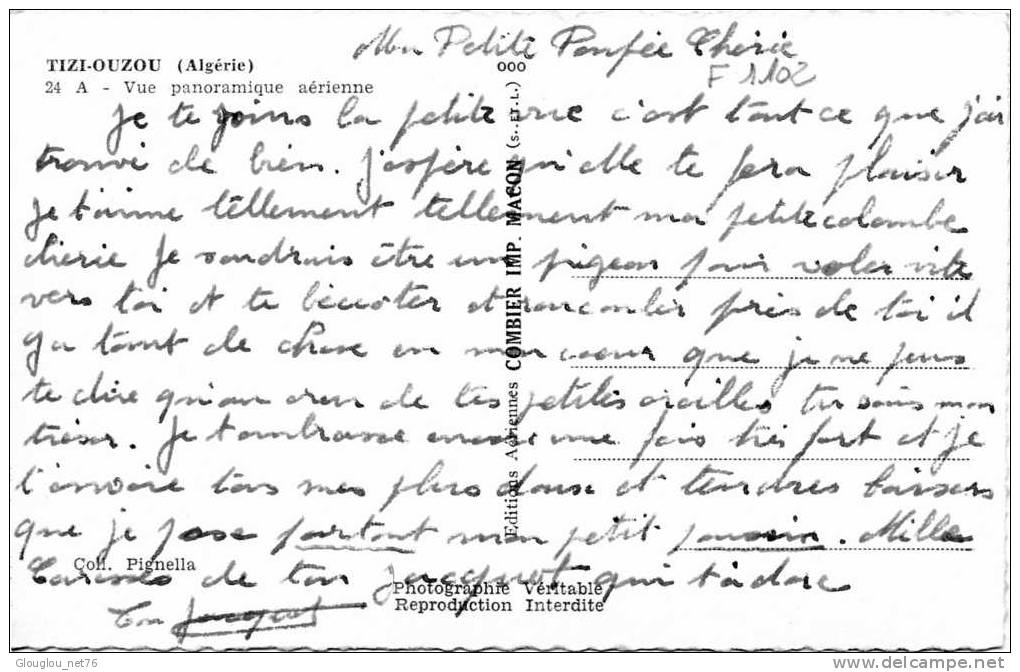 Ma Petite Poupée Chérie
TIZI-OUZOU (Algérie)
24 A - Vue panoramique aérienne
F 1102
Je te joins la petite vue c'est tout ce que j'ai
trouvé de bien. J'espère qu'elle te fera plaisir
Je t'aime tellement tellement ma petite colombe
chérie Je voudrais être un pigeon pour voler vite
vers toi et te bécoter et roucouler près de toi il
y a tant de chose en mon coeur que je ne peus
te dire qu'au creu de tes petites oreilles tu sais mon
trésor. Je t'embrasse encore une fois très fort et je
t'envoie tous mes plus doux et tendres baisers
que je pose partout mon petit poussin. Mille
Caresses de ton Jacquot qui t'adore
Ton Jacquot
Coll. Pignella
Photographie Véritable
Reproduction Interdite
Editions Aériennes COMBIER IMP. MACON (S.-ET-L.)
Glouglou_net76
http://www.delcampe.net